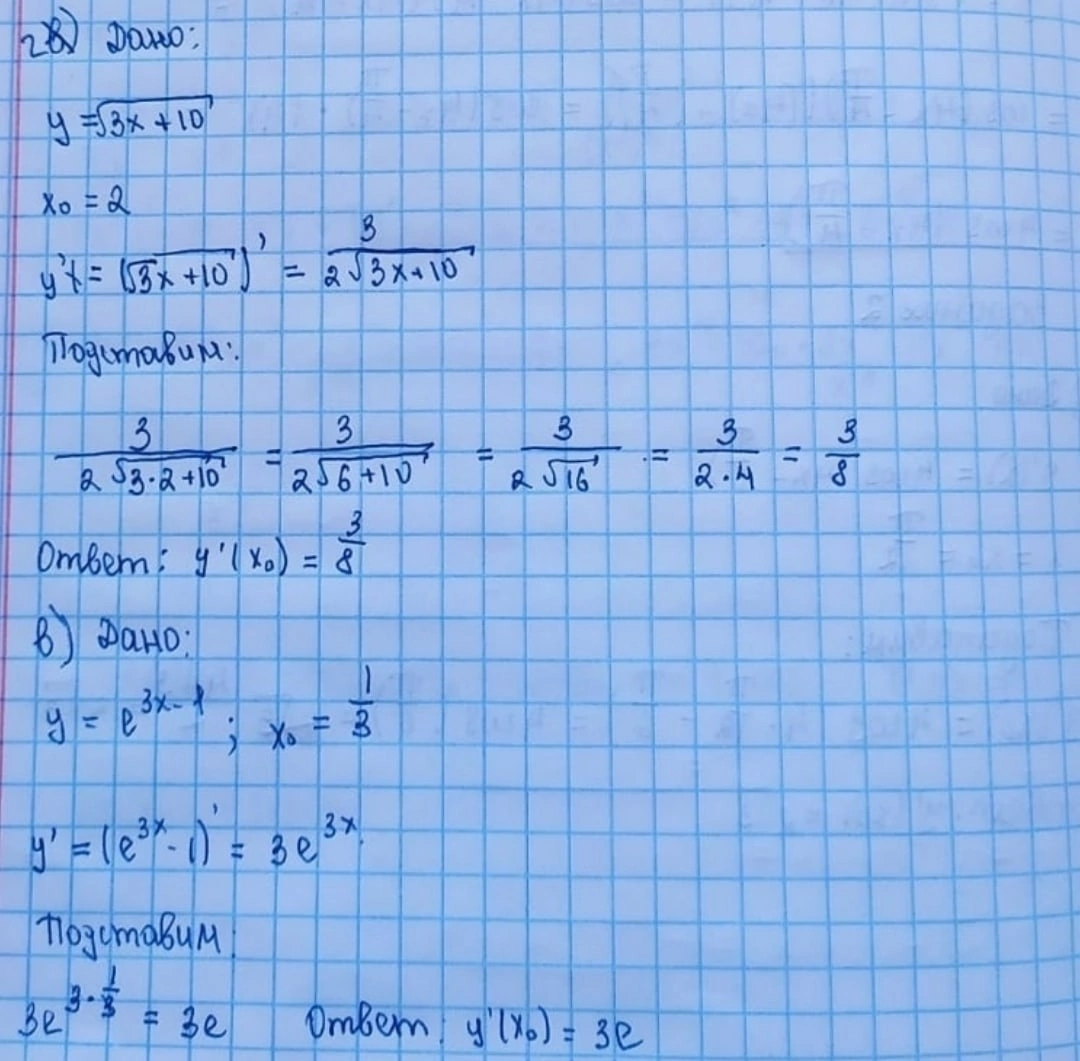 2б) Дано:
y = √(3x + 10)
x₀ = 2
y' = (√(3x + 10))' = 3/(2√(3x + 10))
Подставим:
3/(2√(3·2+10)) = 3/(2√(6+10)) = 3/(2√16) = 3/(2·4) = 3/8
Ответ: y'(x₀) = 3/8
в) Дано:
y = e^(3x-1) ; x₀ = 1/3
y' = (e^(3x) - 1)' = 3e^(3x)
Подставим:
3e^(3·1/3) = 3e Ответ: y'(x₀) = 3e